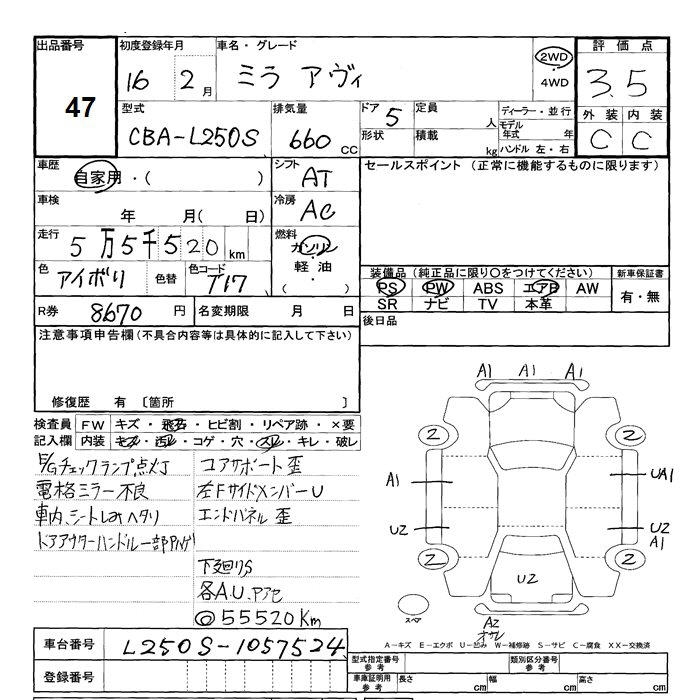 出品番号
47
初度登録年月
16 2月
車名・グレード
ミラ アヴィ
2WD
・
4WD
評価点
3.5
型式
CBA-L250S
排気量
660 CC
ドア 5
形状
定員 人
積載 kg
ディーラー・並行
モデル年式 年
ハンドル 左・右
外装 内装
C C
車歴
自家用・( )
シフト
AT
セールスポイント (正常に機能するものに限ります)
車検
年 月( 日)
冷房
AC
走行
5万5千520 km
燃料
ガソリン
軽油
( ・ )
色
アイボリ
色替
色コード
T17
装備品(純正品に限り〇をつけてください)
PS PW ABS エアB AW
SR ナビ TV 本革
新車保証書
有・無
R券 8670 円
名変期限 月 日
後日品
注意事項申告欄(不具合内容等は具体的に記入して下さい)
修復歴 有 〔箇所 〕
検査員
記入欄
FW キズ・飛石・ヒビ割・リペア跡・×要
内装 キズ・汚れ・コゲ・穴・スレ・キレ・破レ
E/Gチェックランプ点灯
電格ミラー不良
車内、シート ヘタリ
ドアアウターハンドル一部
コアサポート歪
左FサイドメンバーU
エンドパネル歪
下廻りS
各A.U.
◎55520Km
A1 A1 A1
2 2
A1 UA1
U2 U2
A1
2 2
U2
スペア
A2
A-キズ E-エクボ U-凹み W-補修跡 S-サビ C-腐食 XX-交換済
車台番号 L250S-1057524
登録番号
型式指定番号
参考
類別区分番号
参考
車庫証明用
参考
長さ cm 幅 cm 高さ cm